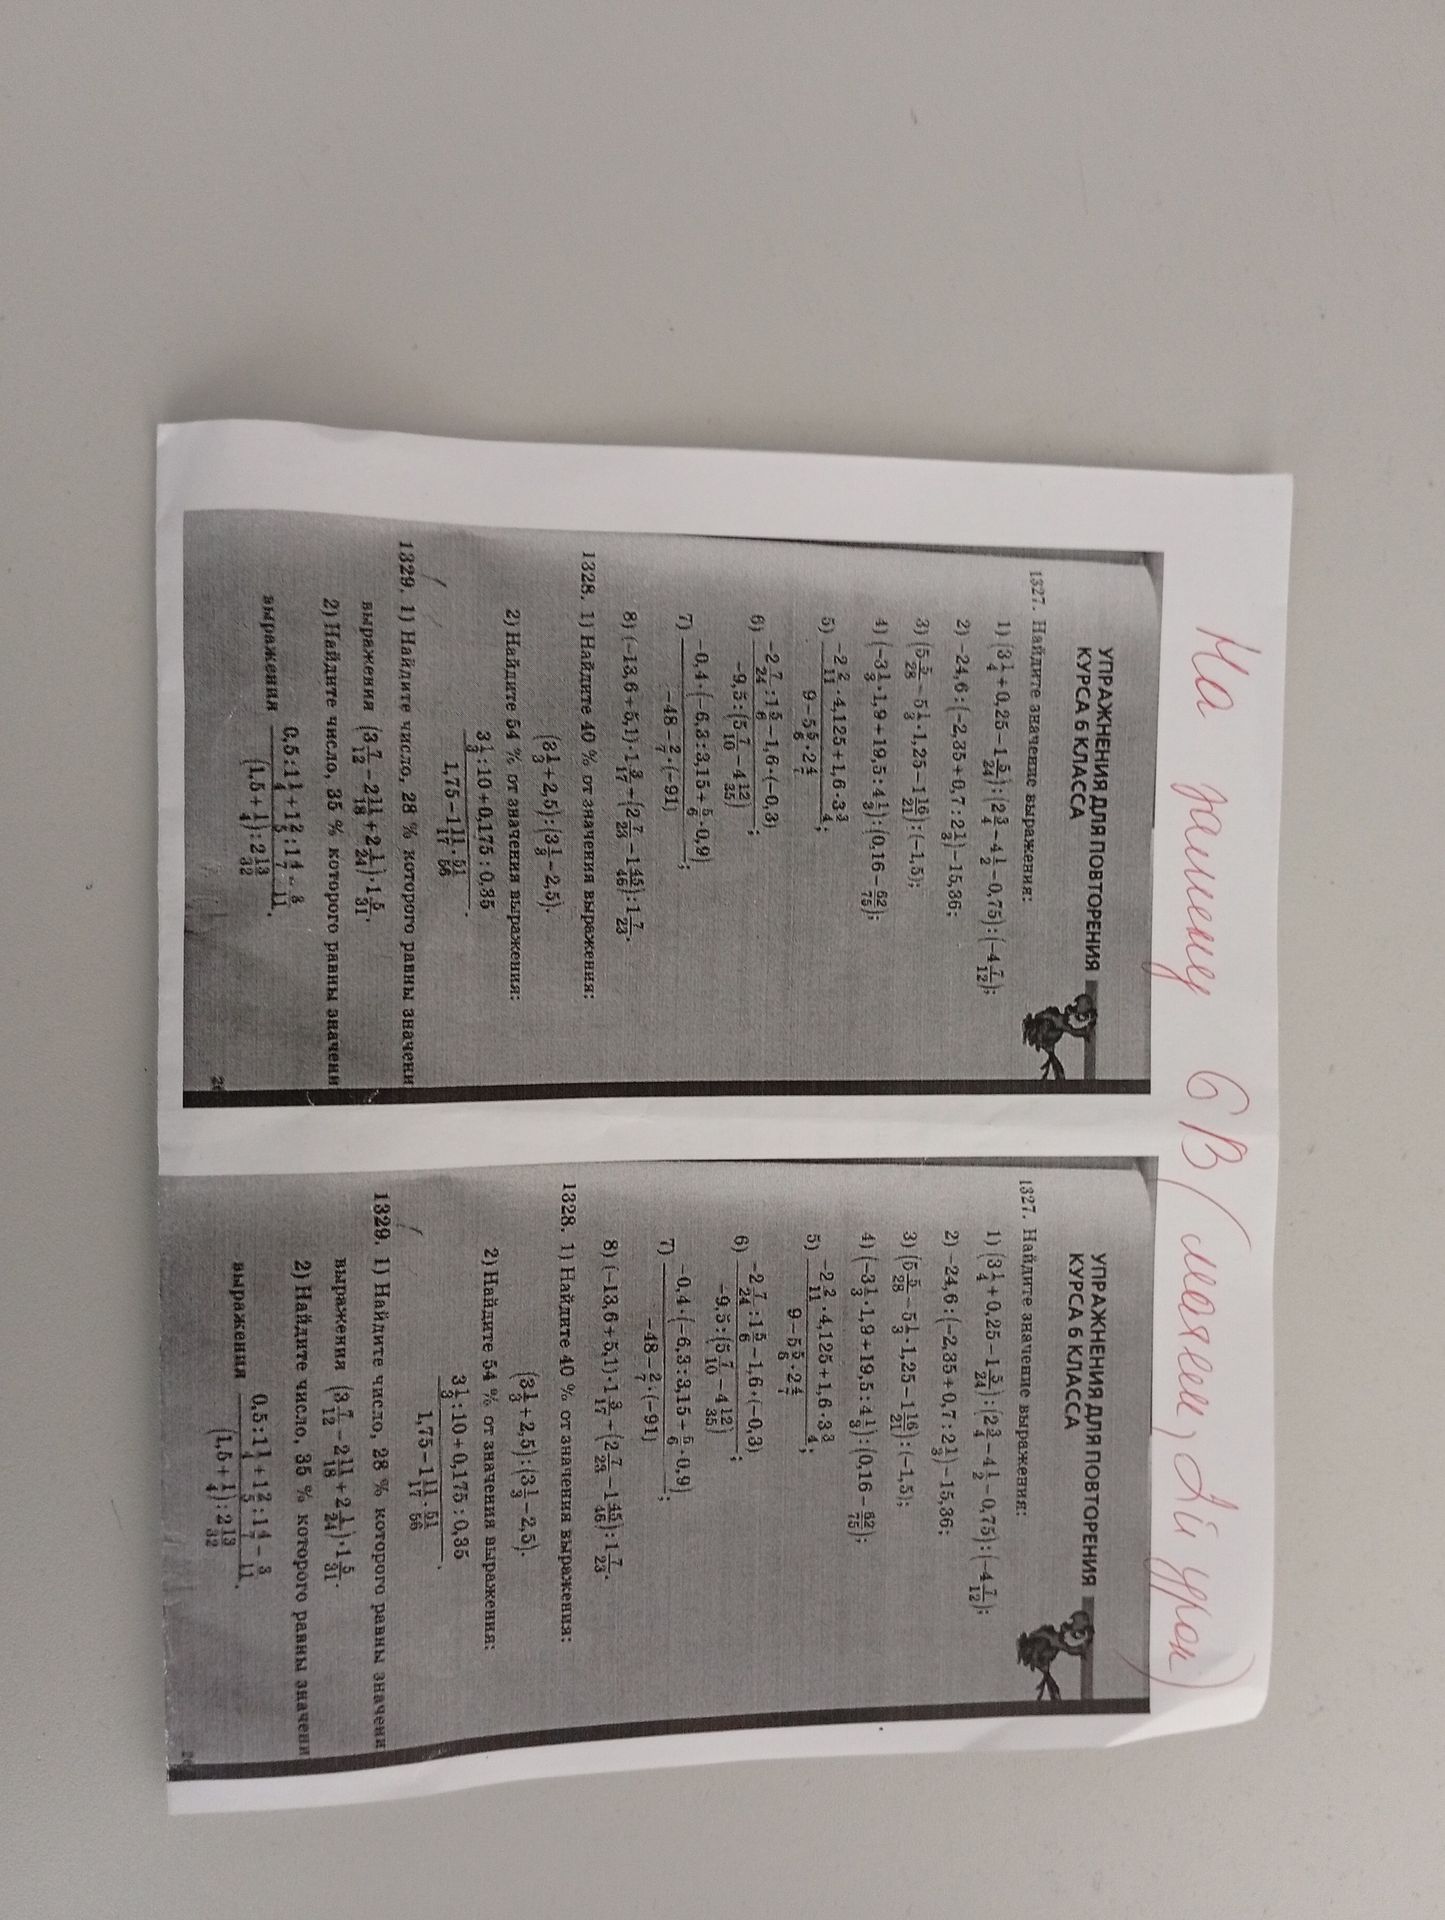 На замену 6В (маляси, 2й урок)
УПРАЖНЕНИЯ ДЛЯ ПОВТОРЕНИЯ
КУРСА 6 КЛАССА
1327. Найдите значение выражения:
1) (3 1/4 + 0,25 − 1 5/24) : (2 3/4 − 4 1/2 − 0,75) : (−4 7/12);
2) −24,6 : (−2,35 + 0,7 : 2 1/3) − 15,36;
3) (5 5/28 − 5 1/3 · 1,25 − 1 16/21) : (−1,5);
4) (−3 1/3 · 1,9 + 19,5 : 4 1/3) : (0,16 − 62/75);
5) (−2 2/11 · 4,125 + 1,6 · 3 3/4) / (9 − 5 5/6 · 2 4/7);
6) (−2 7/24 : 1 5/6 − 1,6 · (−0,3)) / (−9,5 : (5 7/10 − 4 12/35));
7) (−0,4 · (−6,3 : 3,15 + 5/6 · 0,9)) / (−48 − 2/7 · (−91));
8) (−13,6 + 5,1) · 1 3/17 − (2 7/23 − 1 45/46) : 1 7/23.
1328. 1) Найдите 40 % от значения выражения:
(3 1/3 + 2,5) : (3 1/3 − 2,5).
2) Найдите 54 % от значения выражения:
(3 1/3 : 10 + 0,175 : 0,35) / (1,75 − 1 11/17 · 51/56).
1329. 1) Найдите число, 28 % которого равны значени
выражения (3 7/12 − 2 11/18 + 2 1/24) · 1 5/31.
2) Найдите число, 35 % которого равны значени
выражения (0,5 : 1 1/4 + 1 2/5 : 1 4/7 − 3/11) / ((1,5 + 1/4) : 2 13/32).
УПРАЖНЕНИЯ ДЛЯ ПОВТОРЕНИЯ
КУРСА 6 КЛАССА
1327. Найдите значение выражения:
1) (3 1/4 + 0,25 − 1 5/24) : (2 3/4 − 4 1/2 − 0,75) : (−4 7/12);
2) −24,6 : (−2,35 + 0,7 : 2 1/3) − 15,36;
3) (5 5/28 − 5 1/3 · 1,25 − 1 16/21) : (−1,5);
4) (−3 1/3 · 1,9 + 19,5 : 4 1/3) : (0,16 − 62/75);
5) (−2 2/11 · 4,125 + 1,6 · 3 3/4) / (9 − 5 5/6 · 2 4/7);
6) (−2 7/24 : 1 5/6 − 1,6 · (−0,3)) / (−9,5 : (5 7/10 − 4 12/35));
7) (−0,4 · (−6,3 : 3,15 + 5/6 · 0,9)) / (−48 − 2/7 · (−91));
8) (−13,6 + 5,1) · 1 3/17 − (2 7/23 − 1 45/46) : 1 7/23.
1328. 1) Найдите 40 % от значения выражения:
(3 1/3 + 2,5) : (3 1/3 − 2,5).
2) Найдите 54 % от значения выражения:
(3 1/3 : 10 + 0,175 : 0,35) / (1,75 − 1 11/17 · 51/56).
1329. 1) Найдите число, 28 % которого равны значени
выражения (3 7/12 − 2 11/18 + 2 1/24) · 1 5/31.
2) Найдите число, 35 % которого равны значени
выражения (0,5 : 1 1/4 + 1 2/5 : 1 4/7 − 3/11) / ((1,5 + 1/4) : 2 13/32).